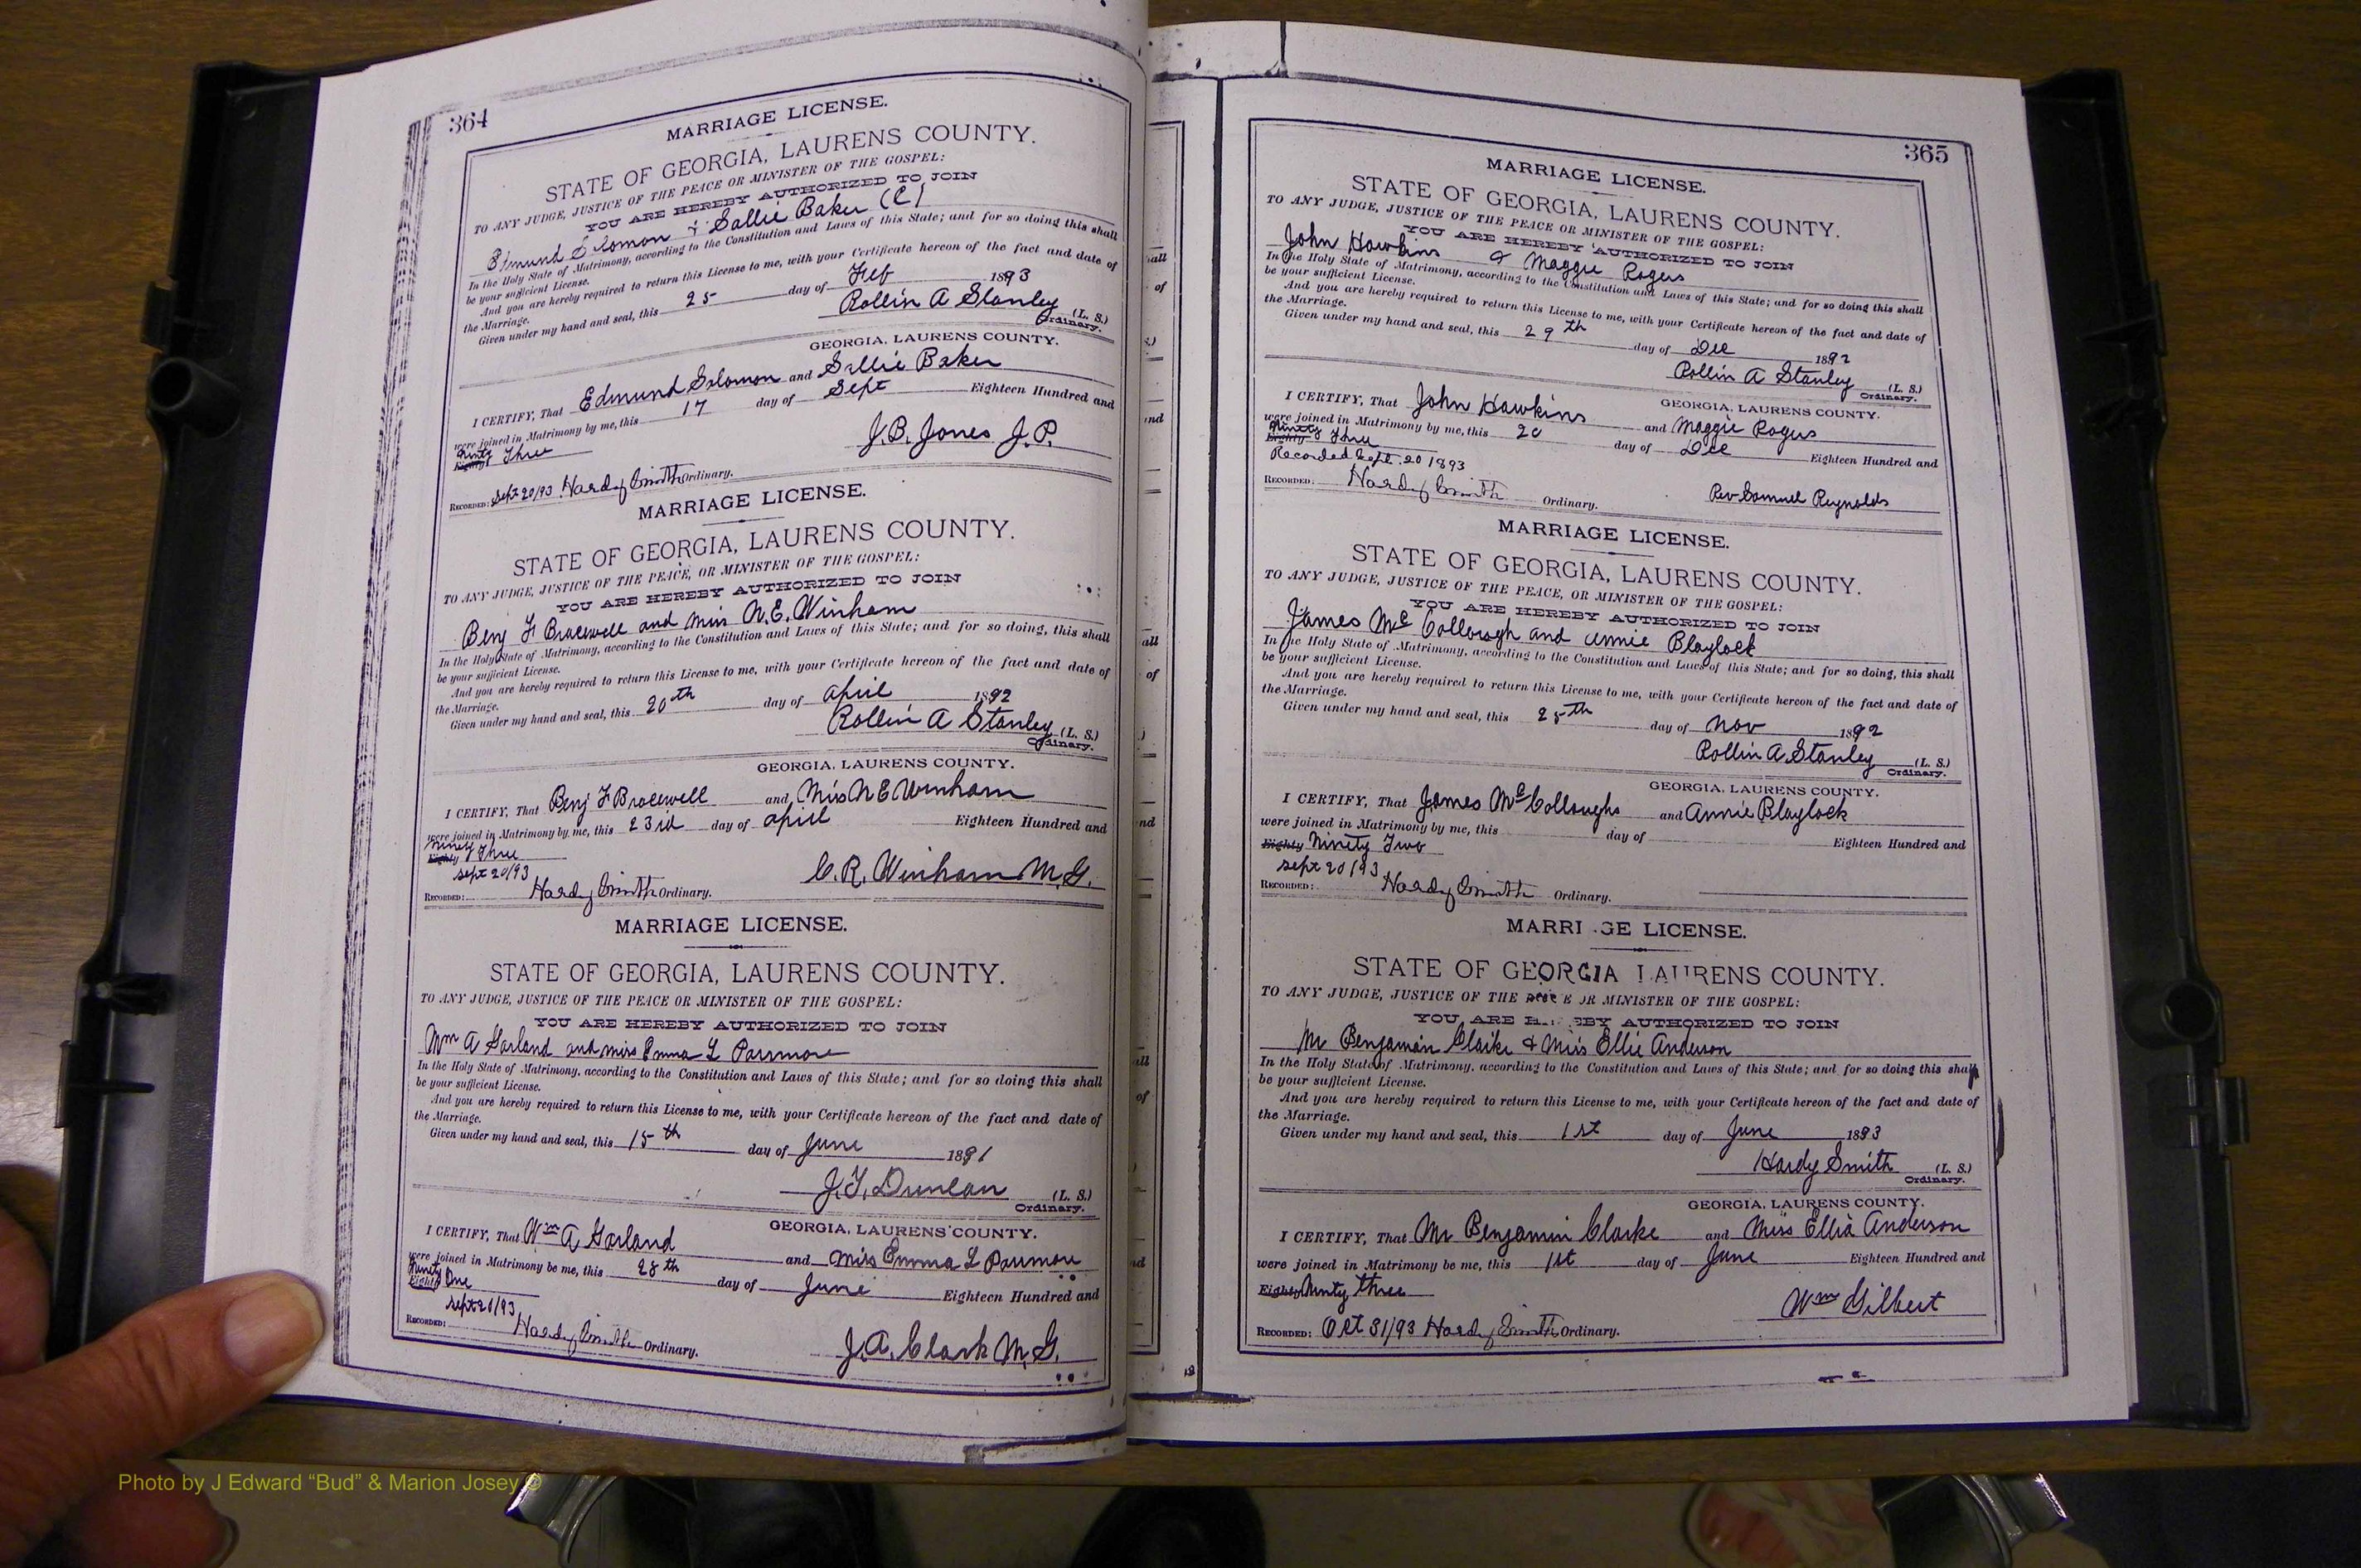 364
MARRIAGE LICENSE.
STATE OF GEORGIA, LAURENS COUNTY.
TO ANY JUDGE, JUSTICE OF THE PEACE OR MINISTER OF THE GOSPEL:
YOU ARE HEREBY AUTHORIZED TO JOIN
Edmund Solomon & Sallie Baker (C)
In the Holy State of Matrimony, according to the Constitution and Laws of this State; and for so doing this shall
be your sufficient License.
And you are hereby required to return this License to me, with your Certificate hereon of the fact and date of
the Marriage.
Given under my hand and seal, this 25 day of Feb 1893
Rollin A Stanley (L. S.)
Ordinary.
GEORGIA, LAURENS COUNTY.
I CERTIFY, That Edmund Solomon and Sallie Baker
were joined in Matrimony by me, this 17 day of Sept Eighteen Hundred and
Eighty Ninty Three
J.B. Jones J.P.
RECORDED: Sept 20/93 Hardy Smith Ordinary.
MARRIAGE LICENSE.
STATE OF GEORGIA, LAURENS COUNTY.
TO ANY JUDGE, JUSTICE OF THE PEACE, OR MINISTER OF THE GOSPEL:
YOU ARE HEREBY AUTHORIZED TO JOIN
Benj F Bracewell and Miss N.E. Winham
In the Holy State of Matrimony, according to the Constitution and Laws of this State; and for so doing, this shall
be your sufficient License.
And you are hereby required to return this License to me, with your Certificate hereon of the fact and date of
the Marriage.
Given under my hand and seal, this 20th day of April 1892
Rollin A Stanley (L. S.)
Ordinary.
GEORGIA, LAURENS COUNTY.
I CERTIFY, That Benj F Bracewell and Miss N E Winham
were joined in Matrimony by me, this 23rd day of April Eighteen Hundred and
Eighty Ninety Three
Sept 20/93
C.R. Winham M.G.
RECORDED: Hardy Smith Ordinary.
MARRIAGE LICENSE.
STATE OF GEORGIA, LAURENS COUNTY.
TO ANY JUDGE, JUSTICE OF THE PEACE OR MINISTER OF THE GOSPEL:
YOU ARE HEREBY AUTHORIZED TO JOIN
Wm A Garland and Miss Emma L Parrmore
In the Holy State of Matrimony, according to the Constitution and Laws of this State; and for so doing this shall
be your sufficient License.
And you are hereby required to return this License to me, with your Certificate hereon of the fact and date of
the Marriage.
Given under my hand and seal, this 15th day of June 1891
J.T. Duncan (L. S.)
Ordinary.
GEORGIA, LAURENS COUNTY.
I CERTIFY, That Wm A Garland and Miss Emma L Parrmore
were joined in Matrimony be me, this 28th day of June Eighteen Hundred and
Eighty Ninety One
Sept 20/93
RECORDED: Hardy Smith Ordinary.
J.A. Clark M.G.
365
MARRIAGE LICENSE.
STATE OF GEORGIA, LAURENS COUNTY.
TO ANY JUDGE, JUSTICE OF THE PEACE OR MINISTER OF THE GOSPEL:
YOU ARE HEREBY AUTHORIZED TO JOIN
John Hawkins & Maggie Rogers
In the Holy State of Matrimony, according to the Constitution and Laws of this State; and for so doing this shall
be your sufficient License.
And you are hereby required to return this License to me, with your Certificate hereon of the fact and date of
the Marriage.
Given under my hand and seal, this 29th day of Dec 1892
Rollin A Stanley (L. S.)
Ordinary.
GEORGIA, LAURENS COUNTY.
I CERTIFY, That John Hawkins and Maggie Rogers
were joined in Matrimony by me, this 20 day of Dec Eighteen Hundred and
Eighty Ninety Three
Recorded Sept. 20 1893
RECORDED: Hardy Smith Ordinary.
Rev Samuel Reynolds
MARRIAGE LICENSE.
STATE OF GEORGIA, LAURENS COUNTY.
TO ANY JUDGE, JUSTICE OF THE PEACE, OR MINISTER OF THE GOSPEL:
YOU ARE HEREBY AUTHORIZED TO JOIN
James McCollough and Annie Blaylock
In the Holy State of Matrimony, according to the Constitution and Laws of this State; and for so doing, this shall
be your sufficient License.
And you are hereby required to return this License to me, with your Certificate hereon of the fact and date of
the Marriage.
Given under my hand and seal, this 25th day of Nov 1892
Rollin A Stanley (L. S.)
Ordinary.
GEORGIA, LAURENS COUNTY.
I CERTIFY, That James McColloughs and Annie Blaylock
were joined in Matrimony by me, this day of Eighteen Hundred and
Eighty Ninety Two
Sept 20/93
RECORDED: Hardy Smith Ordinary.
MARRI GE LICENSE.
STATE OF GEORGIA LAURENS COUNTY.
TO ANY JUDGE, JUSTICE OF THE PEACE OR MINISTER OF THE GOSPEL:
YOU ARE HEREBY AUTHORIZED TO JOIN
Mr Benjamin Clarke & Miss Ellie Anderson
In the Holy State of Matrimony, according to the Constitution and Laws of this State; and for so doing this shall
be your sufficient License.
And you are hereby required to return this License to me, with your Certificate hereon of the fact and date of
the Marriage.
Given under my hand and seal, this 1st day of June 1893
Hardy Smith (L. S.)
Ordinary.
GEORGIA, LAURENS COUNTY.
I CERTIFY, That Mr Benjamin Clarke and Miss Ellia Anderson
were joined in Matrimony be me, this 1st day of June Eighteen Hundred and
Eighty Ninty three
Wm Gilbert
RECORDED: Oct 31/93 Hardy Smith Ordinary.
Photo by J Edward “Bud” & Marion Josey ©